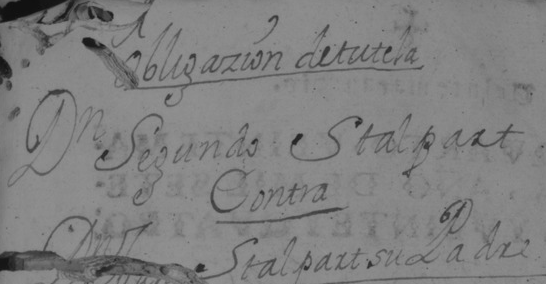 Obligazion de tutela
Dn Segundo Stalpart
Contra
Stalpart su Padre